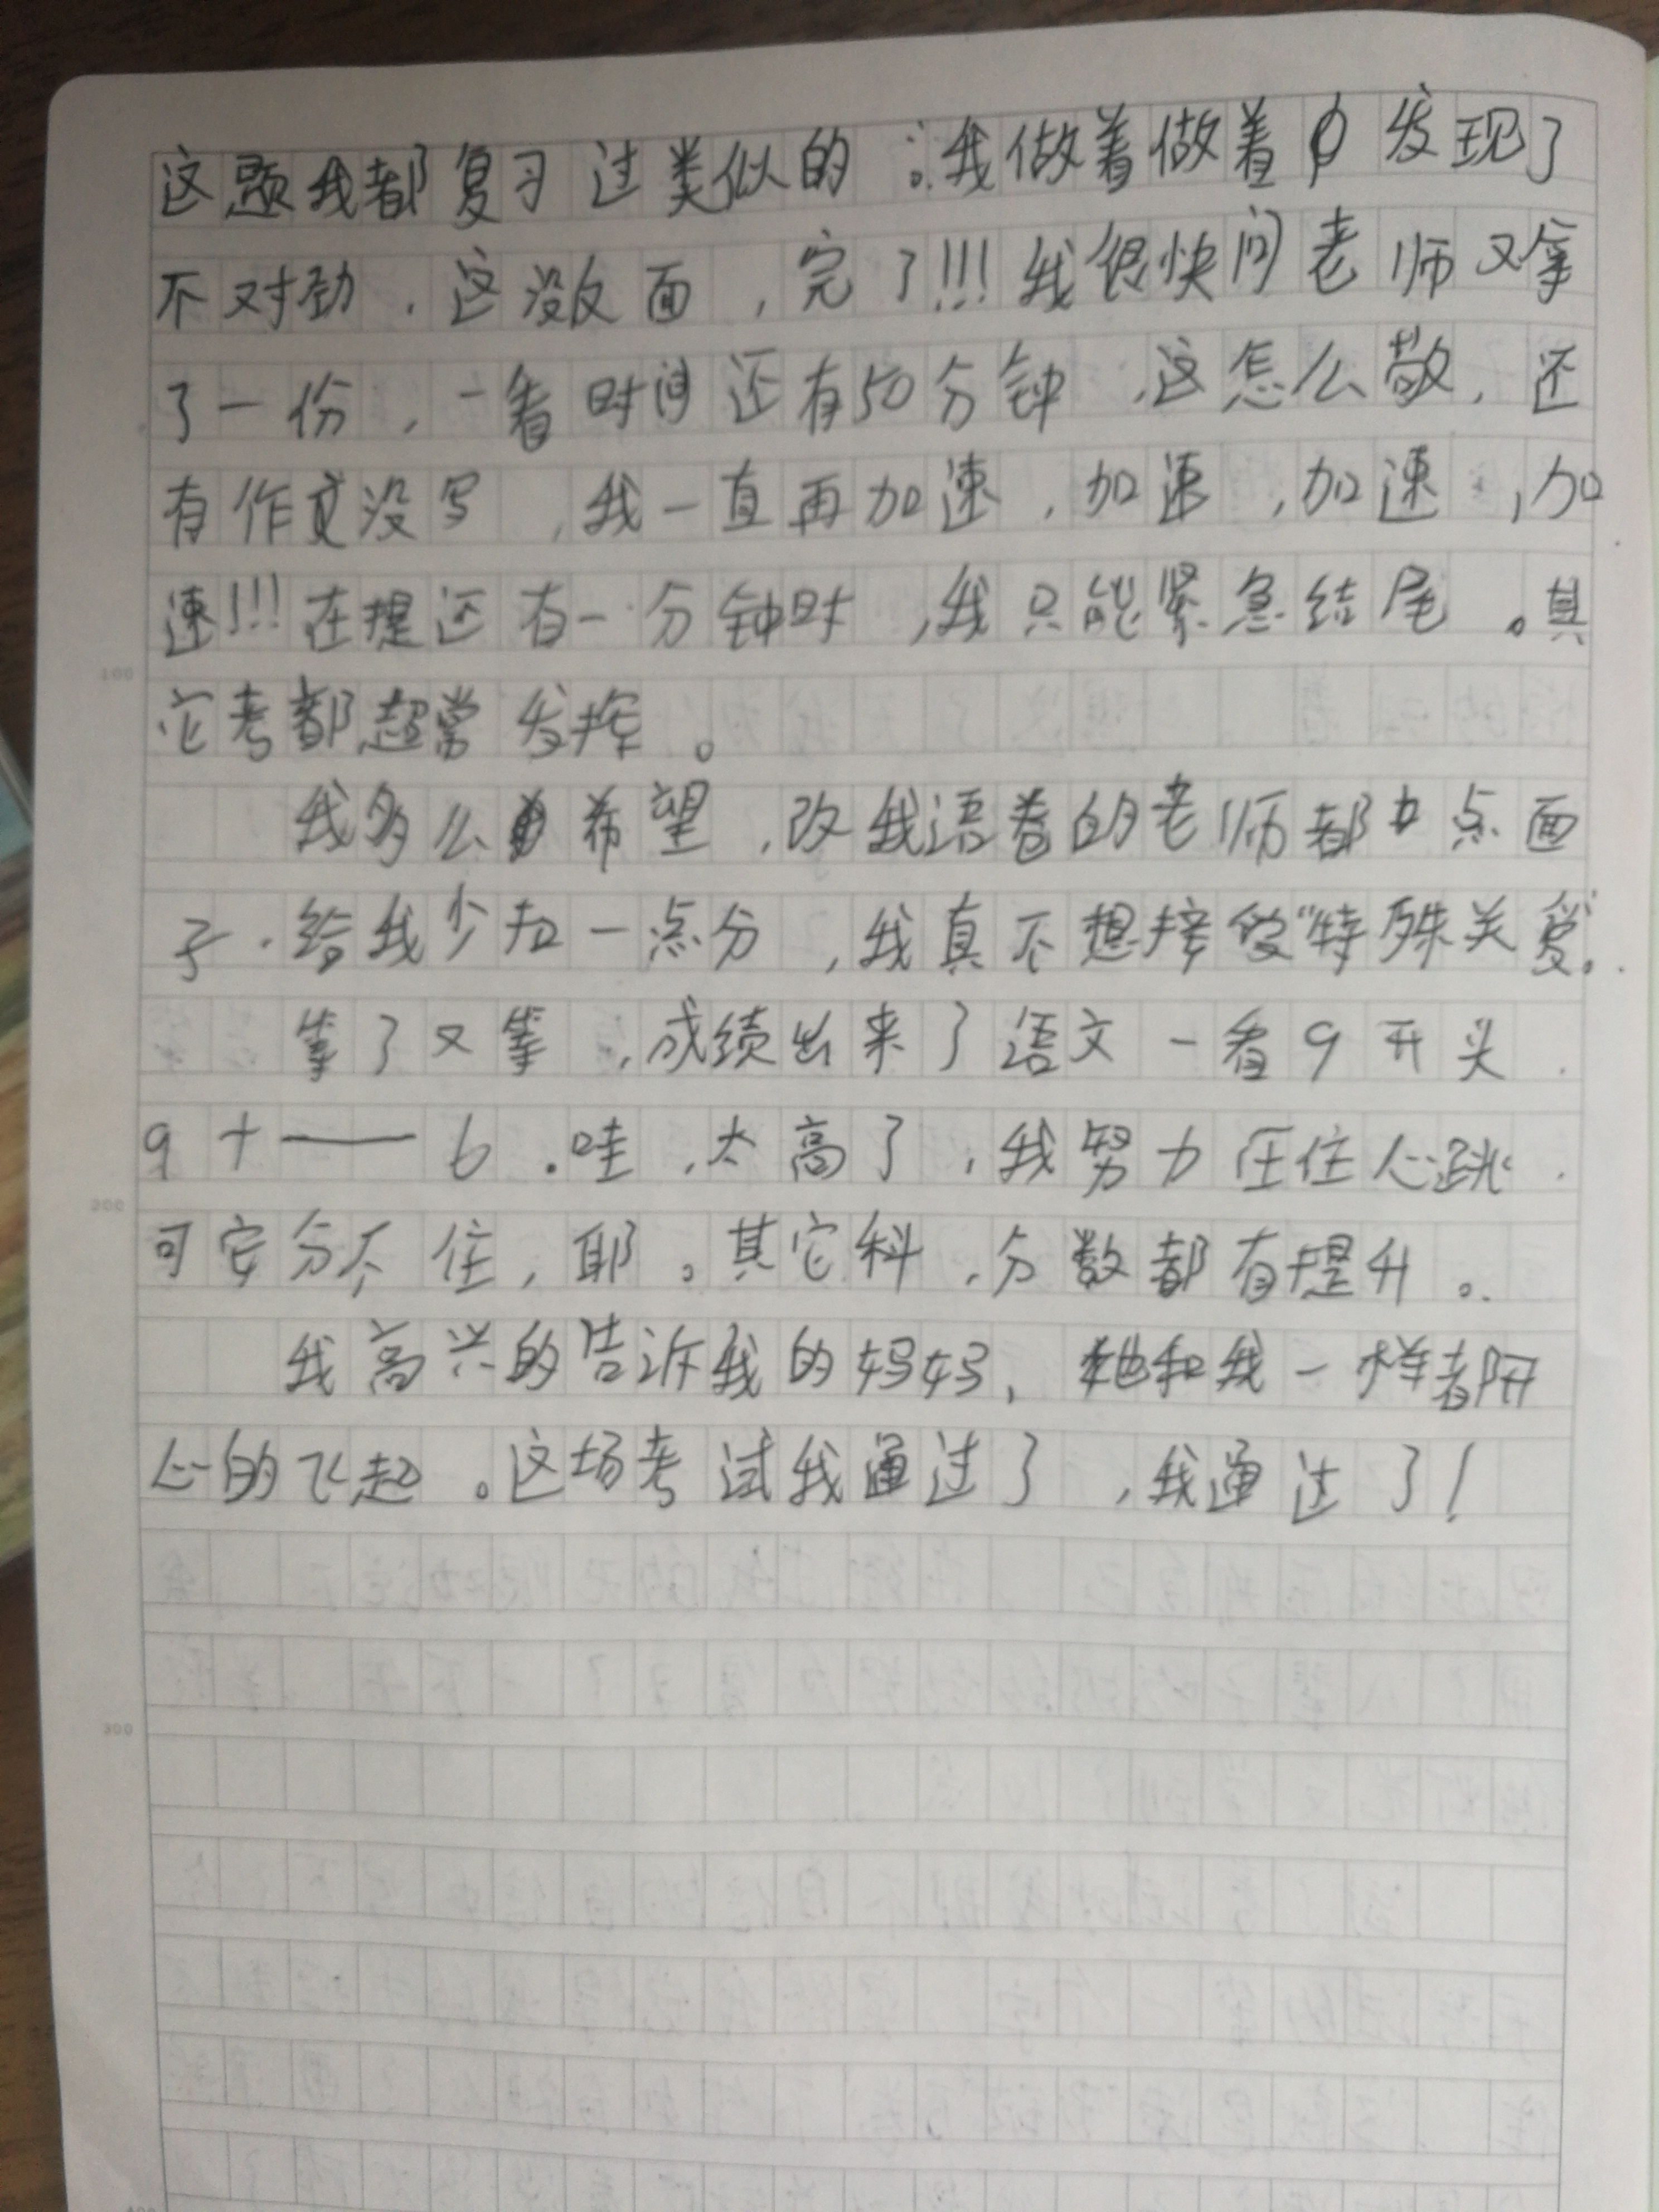 这题我都复习过类似的。我做着做着发现了
不对劲,这没反面,完了!!!我很快问老师又拿
了一份,一看时间还有50分钟,这怎么敢,还
有作文没写,我一直再加速,加速,加速,加
速!!!在提还有一分钟时,我只能紧急结尾。其
它考都超常发挥。
100
我多么希望,改我语卷的老师都点面
子.给我少扣一点分,我真不想接受“特殊关爱”。
等了又等,成绩出来了语文一看9开头.
9十——6.哇,太高了,我努力压住心跳.
200
可安分不住,耶。其它科,分数都有提升。
我高兴的告诉我的妈妈,她和我一样都开
心的飞起。这场考试我通过了,我通过了!
300
400